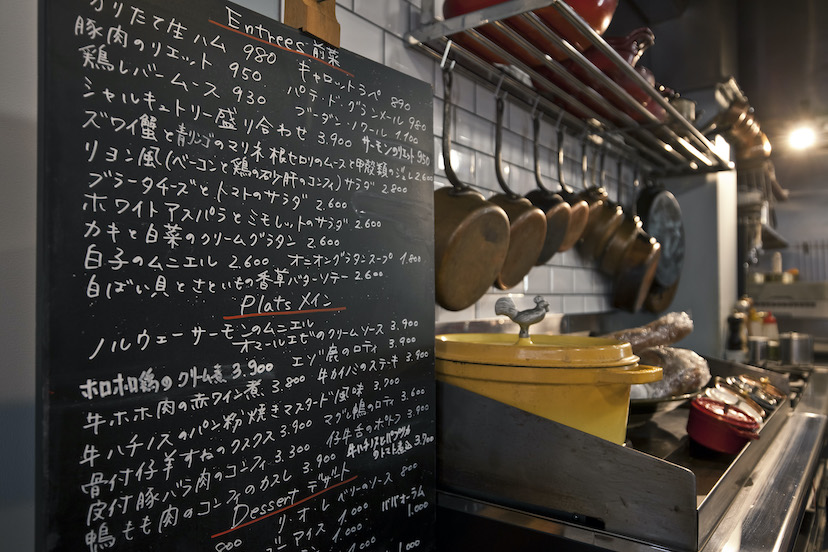 Entrées 前菜
切りたて生ハム 980 キャロットラペ 890
豚肉のリエット 950 パテ・ド・グランメール 980
鶏レバームース 930 ブーダン・ノワール 1.100
シャルキュトリー盛り合わせ 3.900 サーモンのリエット 950
ズワイ蟹と青リンゴのマリネ 根セロリのムースと甲殻類のジュレ 2.600
リヨン風(ベーコンと鶏の砂肝のコンフィ)サラダ 2.800
ブラータチーズとトマトのサラダ 2.600
ホワイトアスパラとミモレットのサラダ 2.600
カキと白菜のクリームグラタン 2.600
白子のムニエル 2.600 オニオングラタンスープ 1.800
白ばい貝とさといもの香草バターソテー 2.600
Plats メイン
ノルウェーサーモンのムニエル
オマールエビのクリームソース 3.900
ホロホロ鶏のクリーム煮 3.900 エゾ鹿のロティ 3.900
牛ホホ肉の赤ワイン煮 3.800 牛カイノミのステーキ 3.900
牛ハチノスのパン粉焼きマスタード風味 3.700
骨付仔羊すねのクスクス 3.900 マグレ鴨のロティ 3.600
皮付豚バラ肉のコンフィ 3.300 仔牛舌のポトフ 3.900
鴨もも肉のコンフィのカスレ 3.900 牛ハチノスと のトマト煮込 3.900
Dessert デザート
リ・オ・レ ベリーのソース 800
アイス 1.000 ババ・オ・ラム
800 1.000 1.000